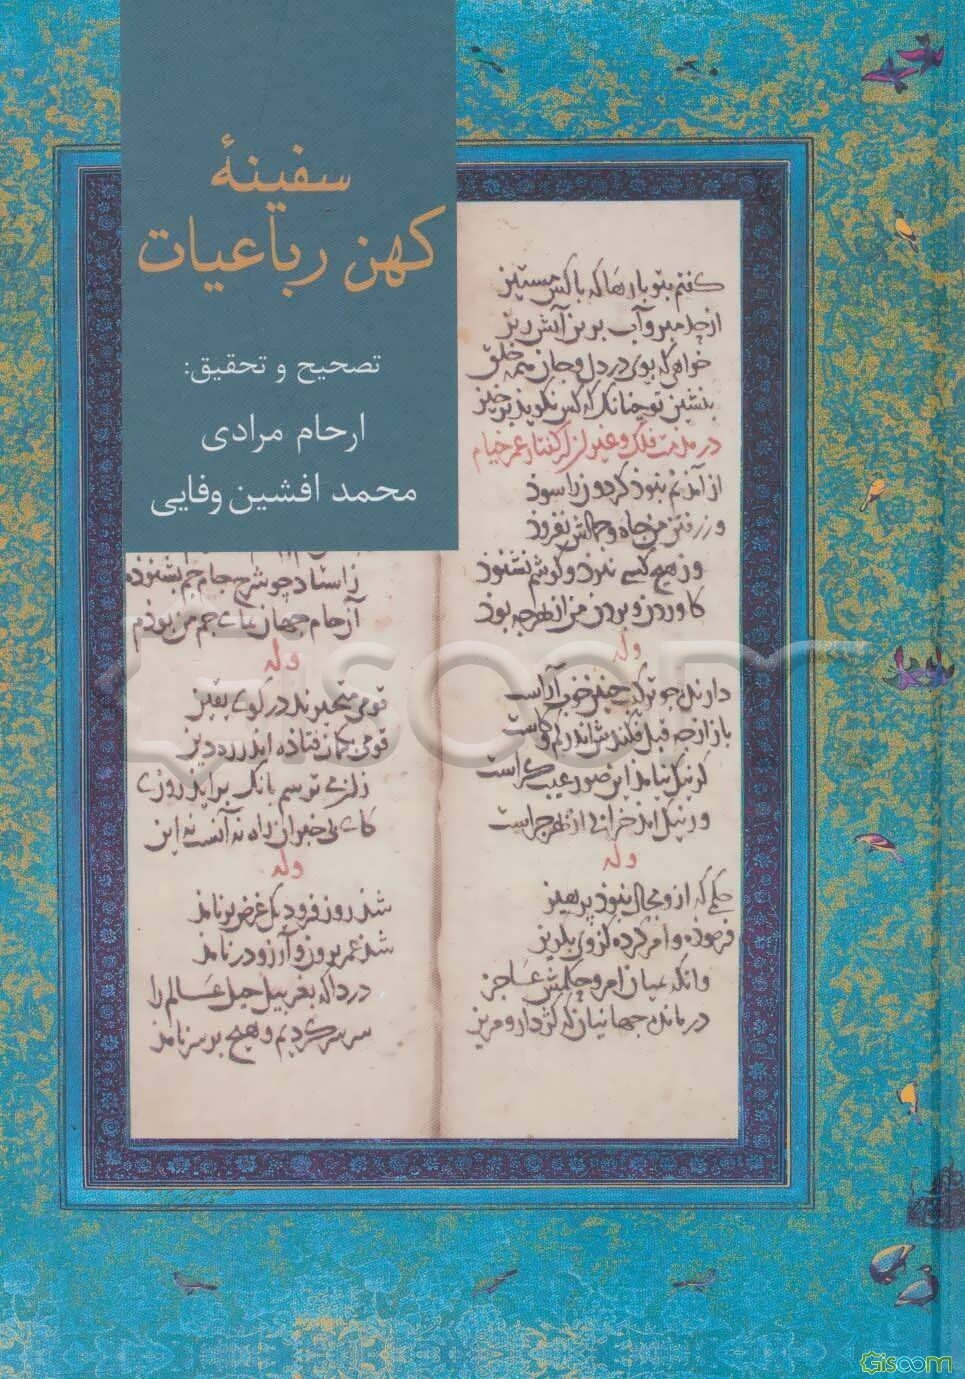 سفینهٔ
کهن رباعیات
تصحیح و تحقیق:
ارحام مرادی
محمد افشین وفایی
کفتم بتو بارها که با کس مستیز
از جد مبر و آب بریز آتش ریز
خواهی که بوی در دل و جان همه خلق
بنشین تو چنانک کس نکوید برخیز
در مذمت فلک و غیر آن از کفتار عمر خیام
از آمدنم نبوذ کردون را سوذ
وز رفتن من جاه و جمالش نفزود
وز هیچ کسی نیز دو کوشم نشنوذ
کاوردن و بردن من از بهر چه بوذ
وله
دارنده چو ترکیب چنین خوب آراست
باز از چه قبل فکندش اندر کم و کاست
کر نیک نیامذ این صور عیب کراست
ور نیک آمذ خرابی از بهر چراست
وله
حکمی که ازو محال بوذ پرهیز
فرموذه و امر کرده کز وی بکریز
وانکه میان امر و حکمش عاجز
درمانده جهانیان که کژ دار و مریز
ز استاد چو شرح جام جم بشنوذم
آن جام جهان نمای جم من بوذم
وله
قومی متحیرند در کوی یقین
قومی بکمان فتاذه اندر ره دین
زان می ترسم که بانک برایذ روزی
کای بی خبران راه نه آنست نه این
وله
شذ روز فرو دیک غرض بر نامذ
شذ عمر برون و آرزو در نامذ
دردا که بغربیل حیل عالم را
سر سر کردیم و هیچ بر سر نامذ
Giscom
Giscom